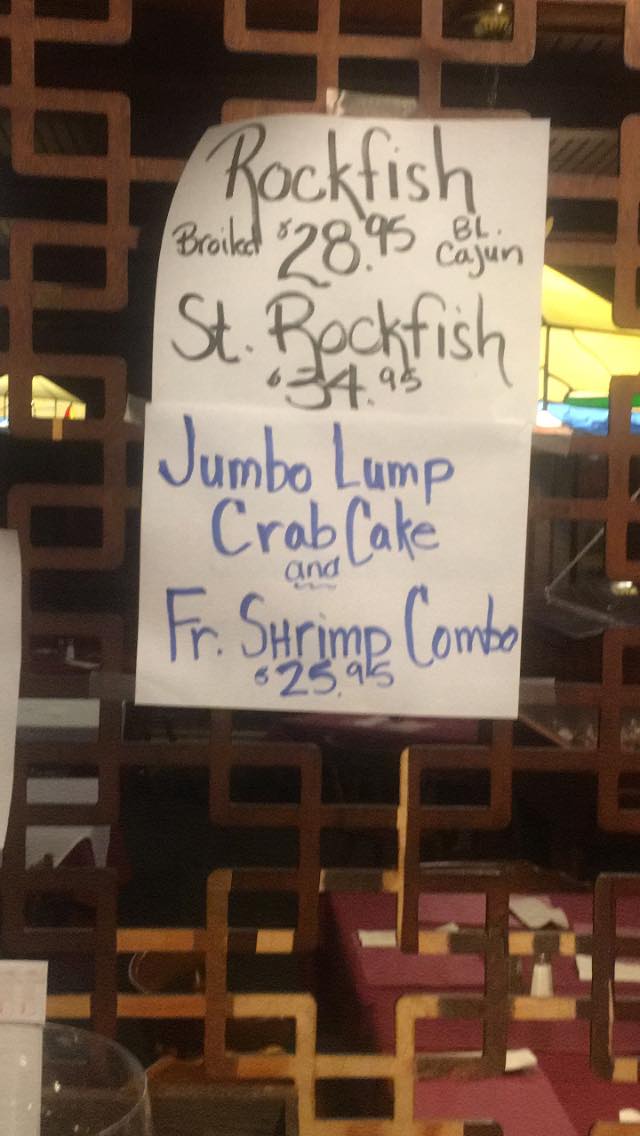 Rockfish
Broiled $28.95 BL. Cajun
St. Rockfish
$34.95
Jumbo Lump
Crab Cake
and
Fr. SHrimp Combo
$25.95